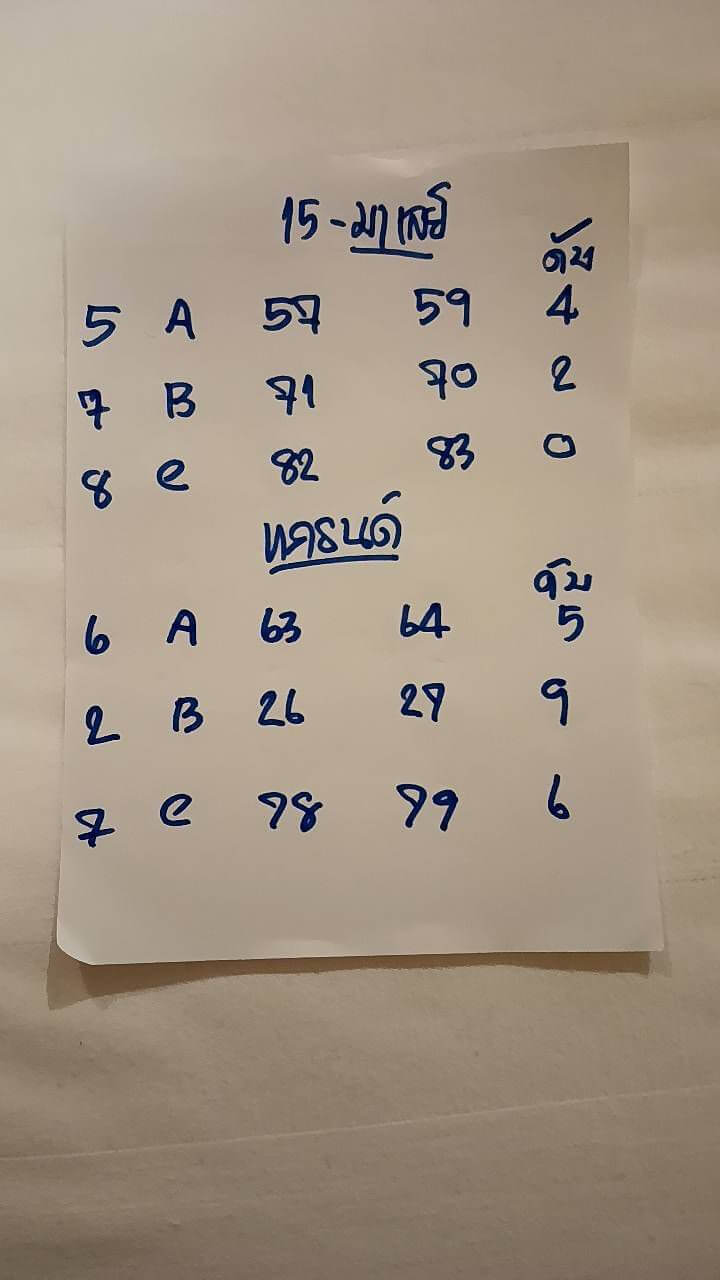 15-มาเลย์
ดับ
5 A 57 59 4
7 B 71 70 2
8 C 82 83 0
ทครนด์
ดับ
6 A 63 64 5
2 B 26 27 9
7 C 78 79 6